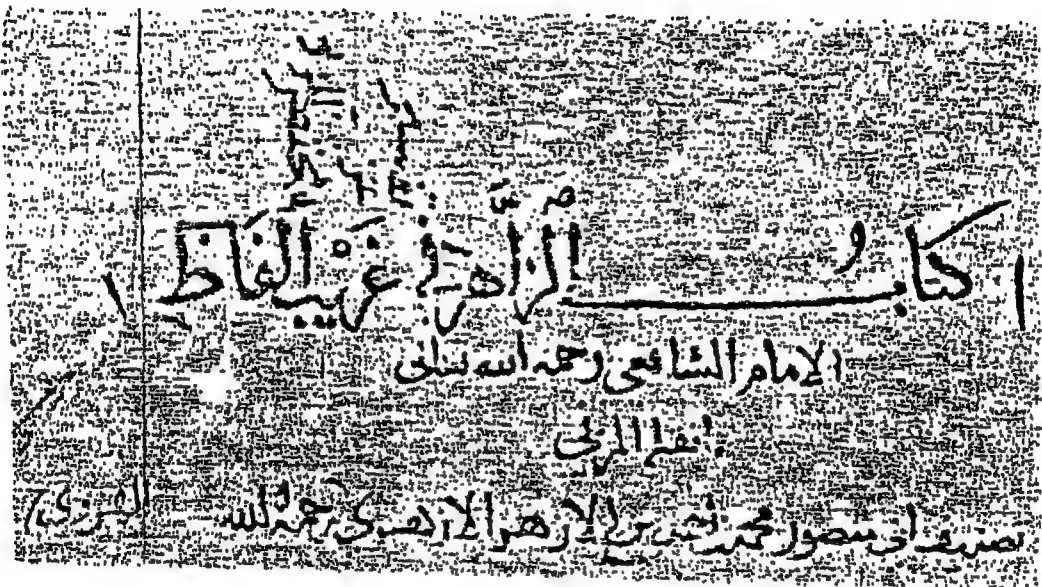 كتاب الزاهر في غريب ألفاظ
الإمام الشافعي رحمه الله تعالى
المزني
تصنيف أبي منصور محمد بن أحمد بن الأزهر الأزهري رحمه الله